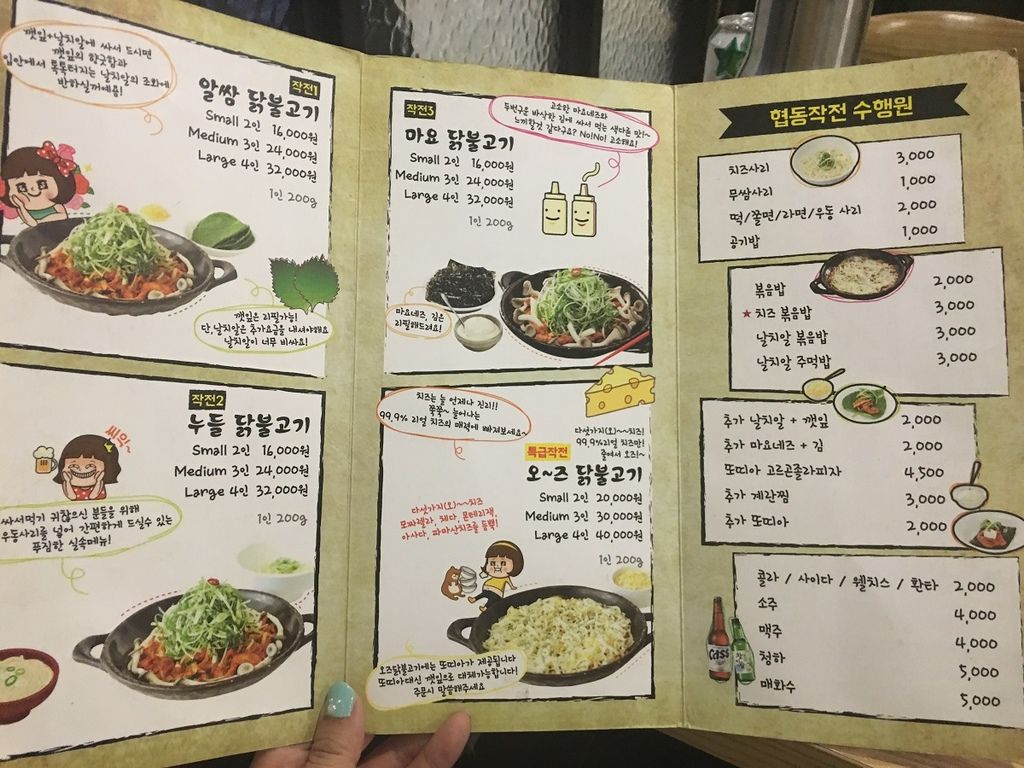 깻잎+날치알에 싸서 드시면
깻잎의 향긋함과
입안에서 톡톡터지는 날치알의 조화에
반하실꺼에욤!
작전1
알쌈 닭불고기
Small 2인 16,000원
Medium 3인 24,000원
Large 4인 32,000원
1인 200g
깻잎은 리필가능!
단, 날치알은 추가요금을 내셔야해요
날치알이 너무 비싸요!
작전2
누들 닭불고기
Small 2인 16,000원
Medium 3인 24,000원
Large 4인 32,000원
1인 200g
씨익~
싸서먹기 귀찮으신 분들을 위해
우동사리를 넣어 간편하게 드실수 있는
푸짐한 실속메뉴!
작전3
마요 닭불고기
Small 2인 16,000원
Medium 3인 24,000원
Large 4인 32,000원
1인 200g
고소한 마요네즈와
두번구운 바삭한 김에 싸서 먹는 색다른 맛!~
느끼할것 같다구요? No!No! 고소해요!
마요네즈, 김은
리필해드려요!
치즈는 늘 언제나 진리!!
쭉쭉~ 늘어나는
99.9% 리얼 치즈의 매력에 빠져보세요~
다섯가지(오)~~치즈!
99.9%리얼 치즈만!
줄여서 오즈!~
특급작전
오~즈 닭불고기
Small 2인 20,000원
Medium 3인 30,000원
Large 4인 40,000원
1인 200g
다섯가지(오)~~치즈
모짜렐라, 체다, 몬테리잭,
아사다, 파마산치즈를 듬뿍!
오즈닭불고기에는 또띠아가 제공됩니다
또띠아대신 깻잎으로 대체가능합니다!
주문시 말씀해주세요
협동작전 수행원
치즈사리 3,000
무쌈사리 1,000
떡/쫄면/라면/우동 사리 2,000
공기밥 1,000
볶음밥 2,000
★ 치즈 볶음밥 3,000
날치알 볶음밥 3,000
날치알 주먹밥 3,000
추가 날치알 + 깻잎 2,000
추가 마요네즈 + 김 2,000
또띠아 고르곤졸라피자 4,500
추가 계란찜 3,000
추가 또띠아 2,000
콜라 / 사이다 / 웰치스 / 환타 2,000
소주 4,000
맥주 4,000
청하 5,000
매화수 5,000
Cass